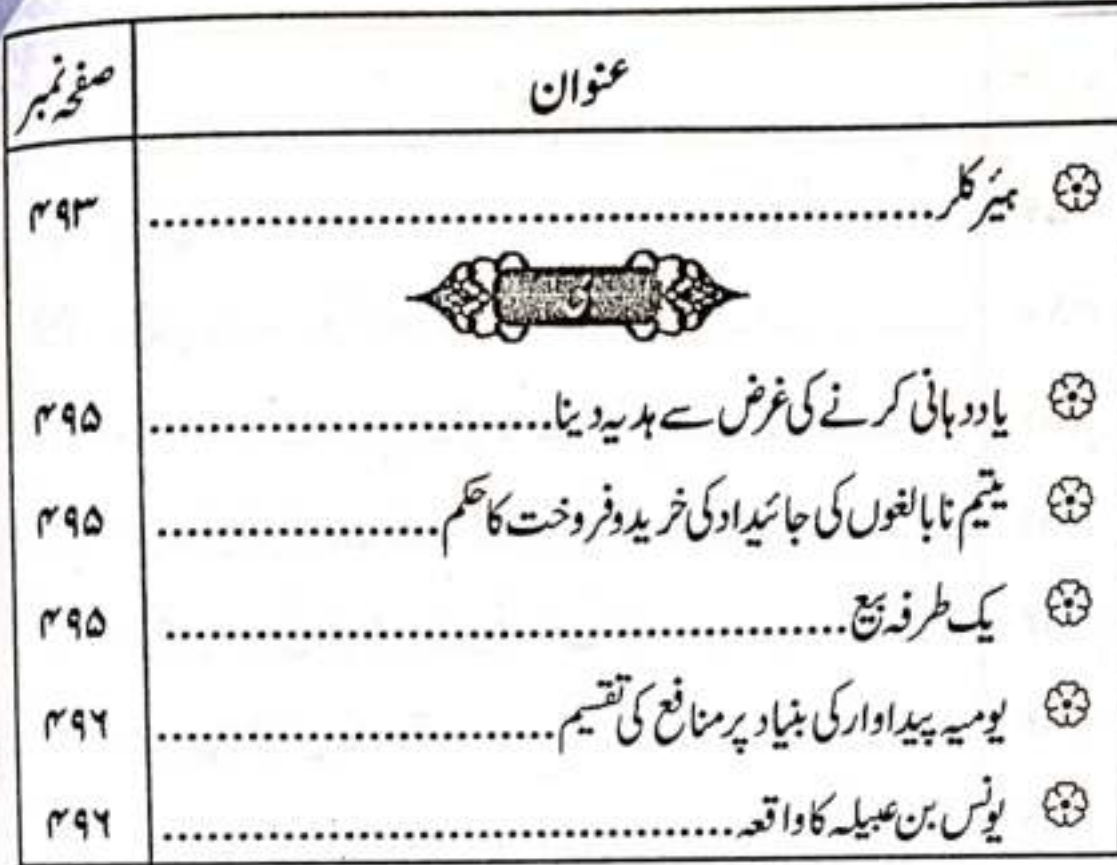 عنوان صفحہ نمبر
ہیئر کلر ۴۹۳
ی
یاددہانی کرنے کی غرض سے ہدیہ دینا ۴۹۵
یتیم نابالغوں کی جائیداد کی خرید و فروخت کا حکم ۴۹۵
یک طرفہ بیع ۴۹۵
یومیہ پیداوار کی بنیاد پر منافع کی تقسیم ۴۹۶
یونس بن عبیلہ کا واقعہ ۴۹۶